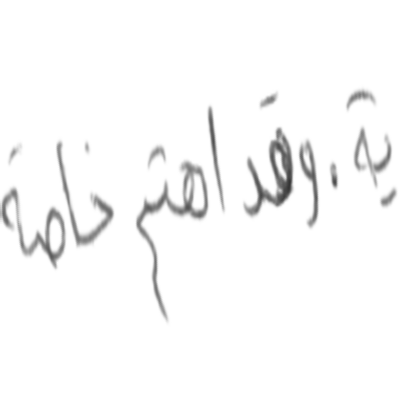 ية. وقد اهتم خاصة